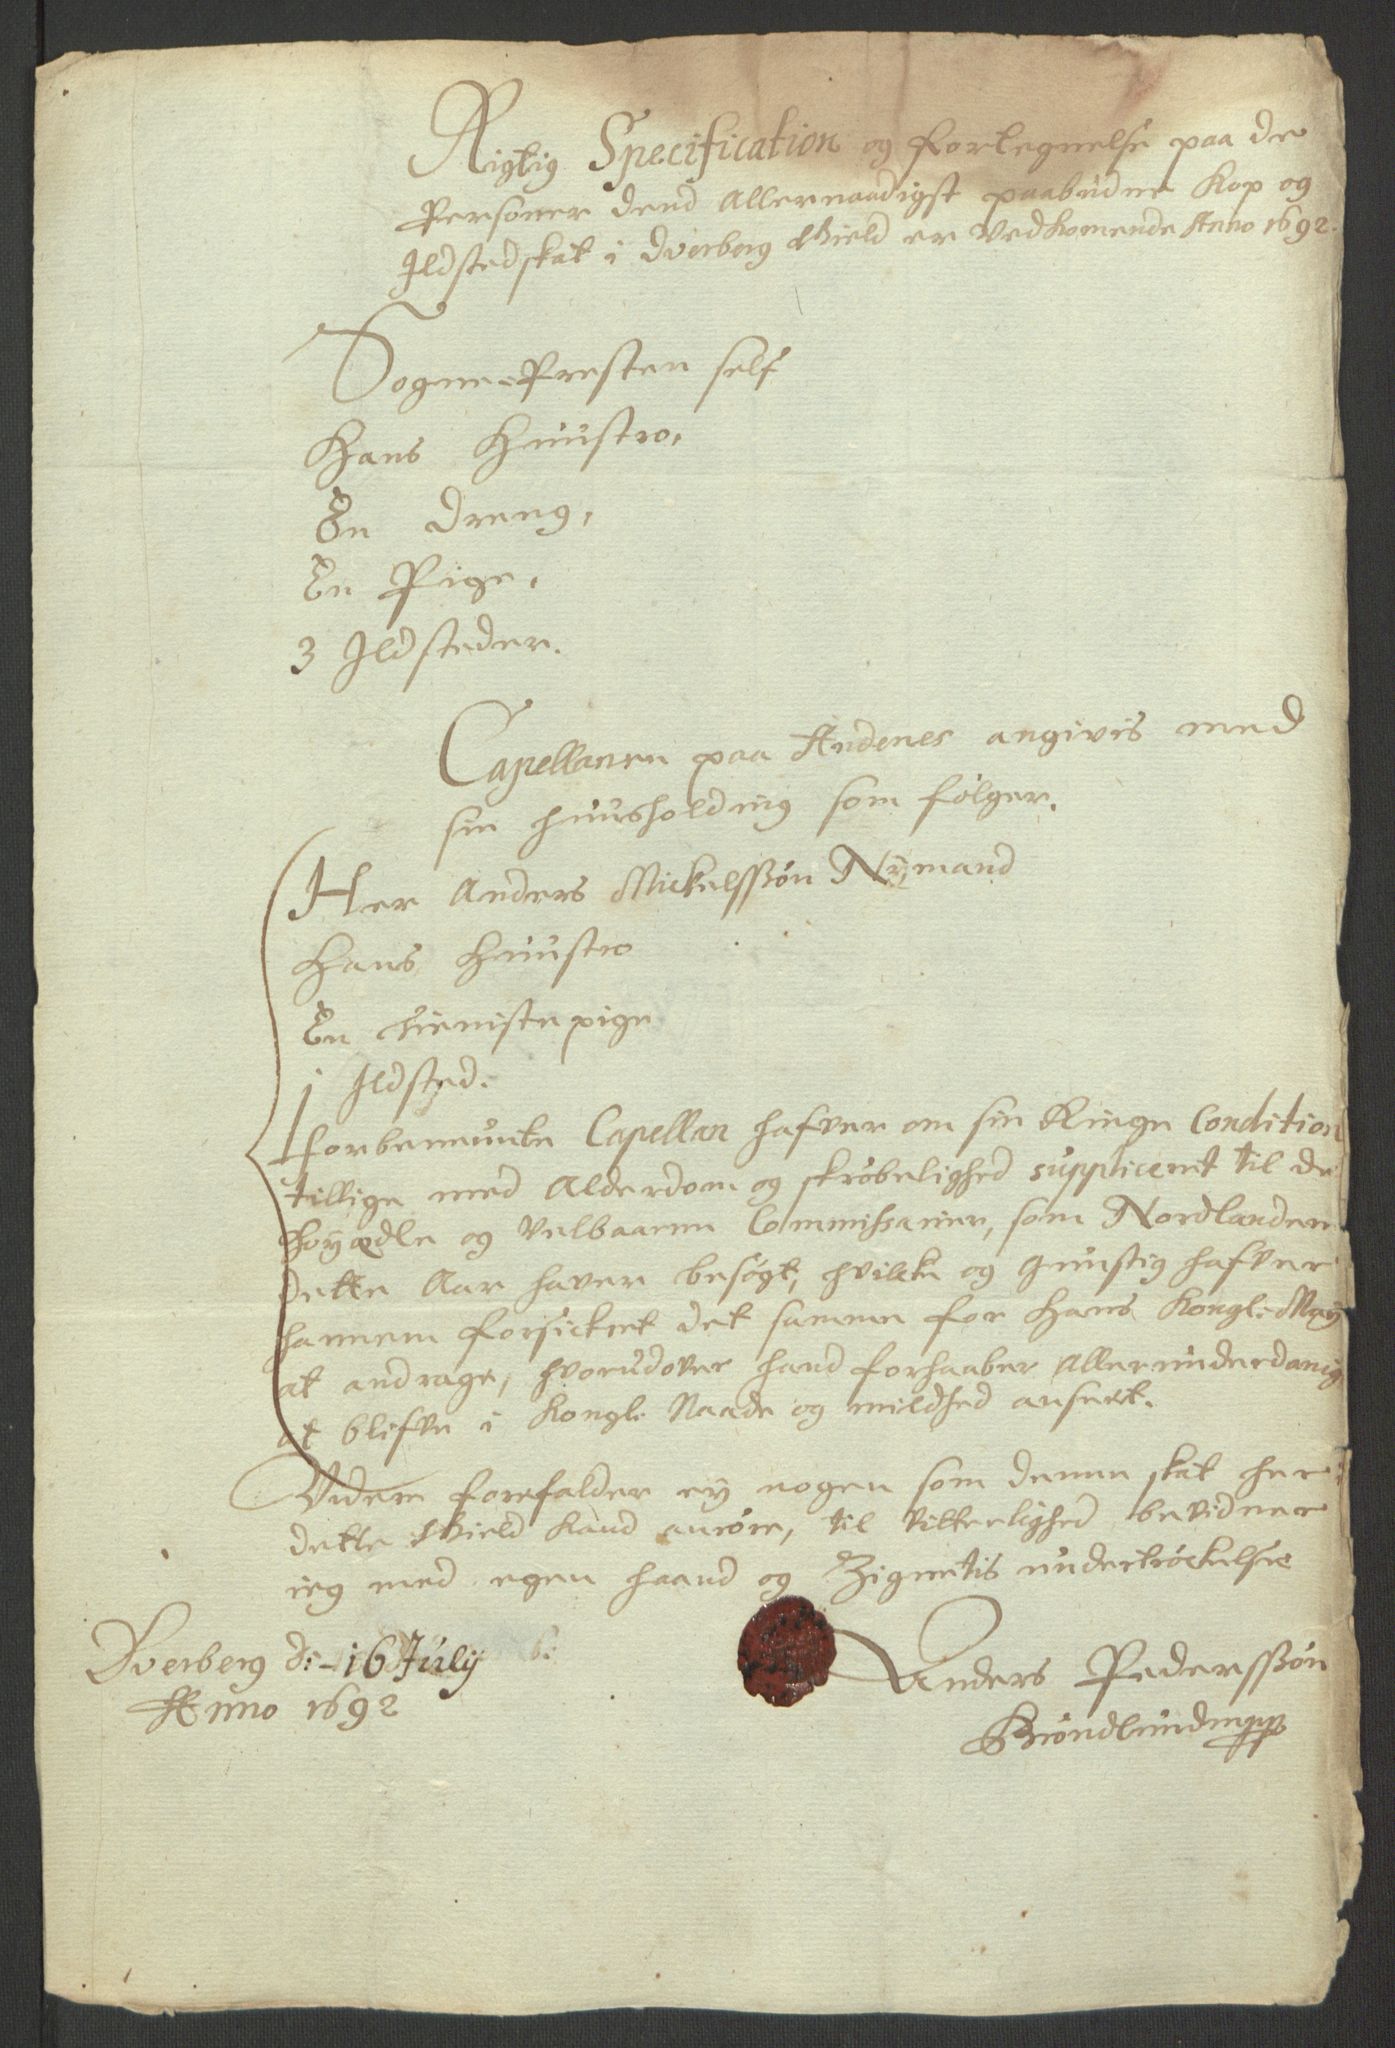 Rigtig Specification og fortegnelse paa de
Personer dend Allernaadigst paabudne Kop og
Ildstedskat i Dverberg Gield er Vedkomende Anno 1692.
Sogne-Presten self
Hans Huustro,
En Dreng,
En Pige,
3 Ildsteder.
Capellanen paa Andenes angivis med
sin huusholding som følger.
Her Anders Mickelssøn Nymand
Hans Huustro
En tieniste pige
1 Ildsted.
forbenemte Capellan hafver om sin Ringe Condition
tillige med Alderdom og skrøbelighed supplicerit til de
Høyædle og Velbaarne Commissarier, som Nordlanden
dette Aar haver besøgt, hvilcke og gunstig hafver
hannem forsickret det samme for Hans Kongl: May
at andrage, hvorudover hand forhaaber Allerunderdanig
at blifve i Kongl: Naade og mildhed anseet.
Videre forefalder ey nogen som denne skat her i
dette Gield kand anrøre, til Vitterlighed bevidner
ieg med egen haand og Zignetis undertrøckelse
Dverberg d: 16 July
Anno 1692
Anders Pederssøn
Brøndlund mpp